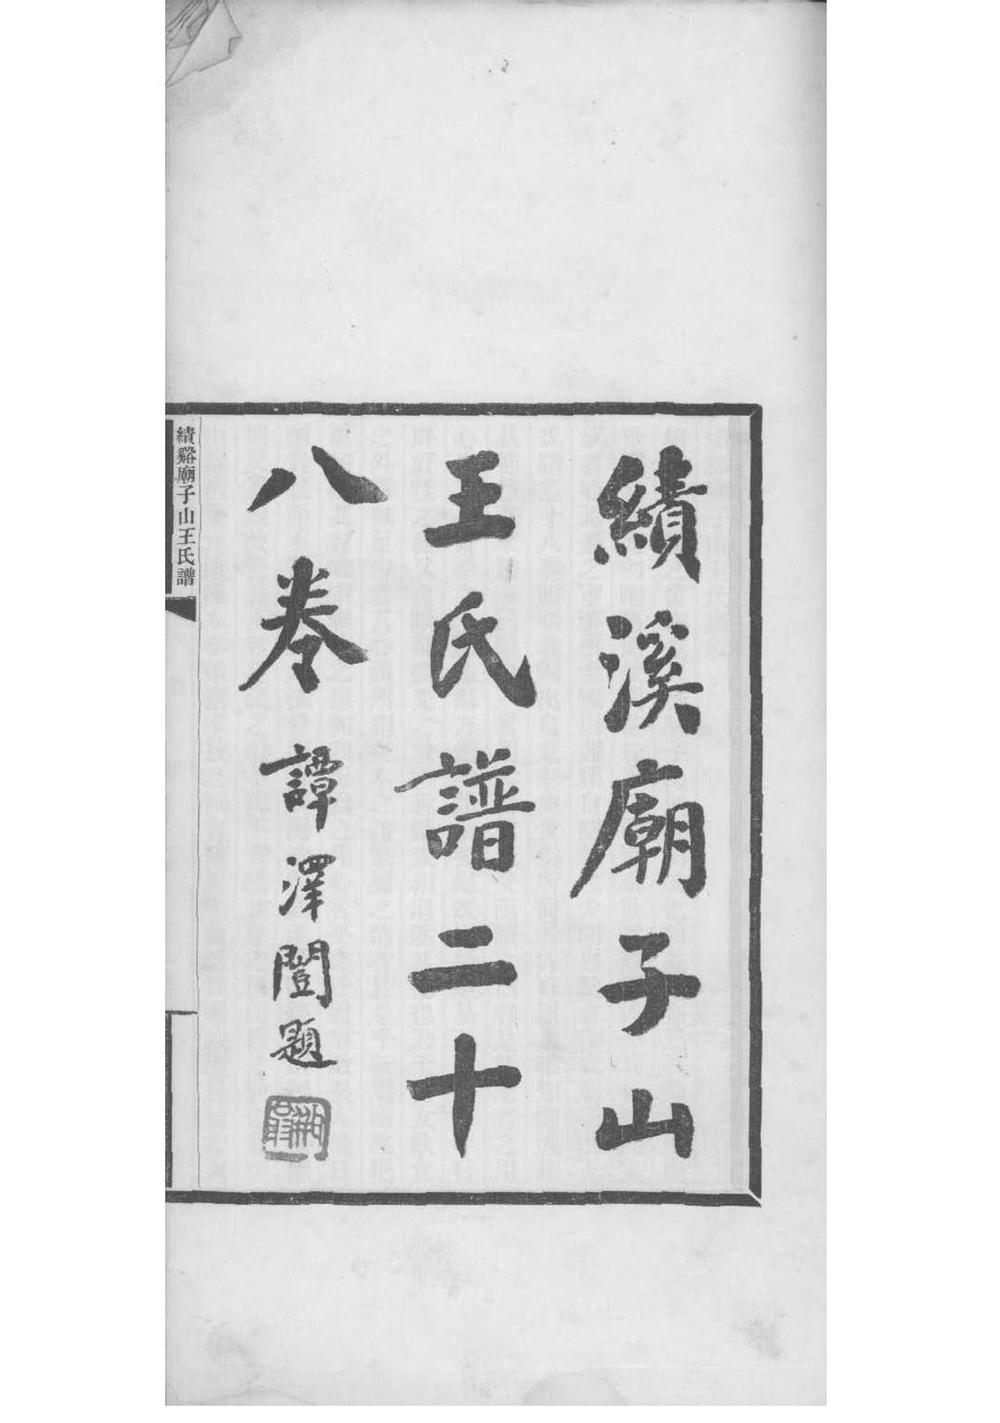 績溪廟子山
王氏譜二十
八卷
譚澤闓題
績谿廟子山王氏譜